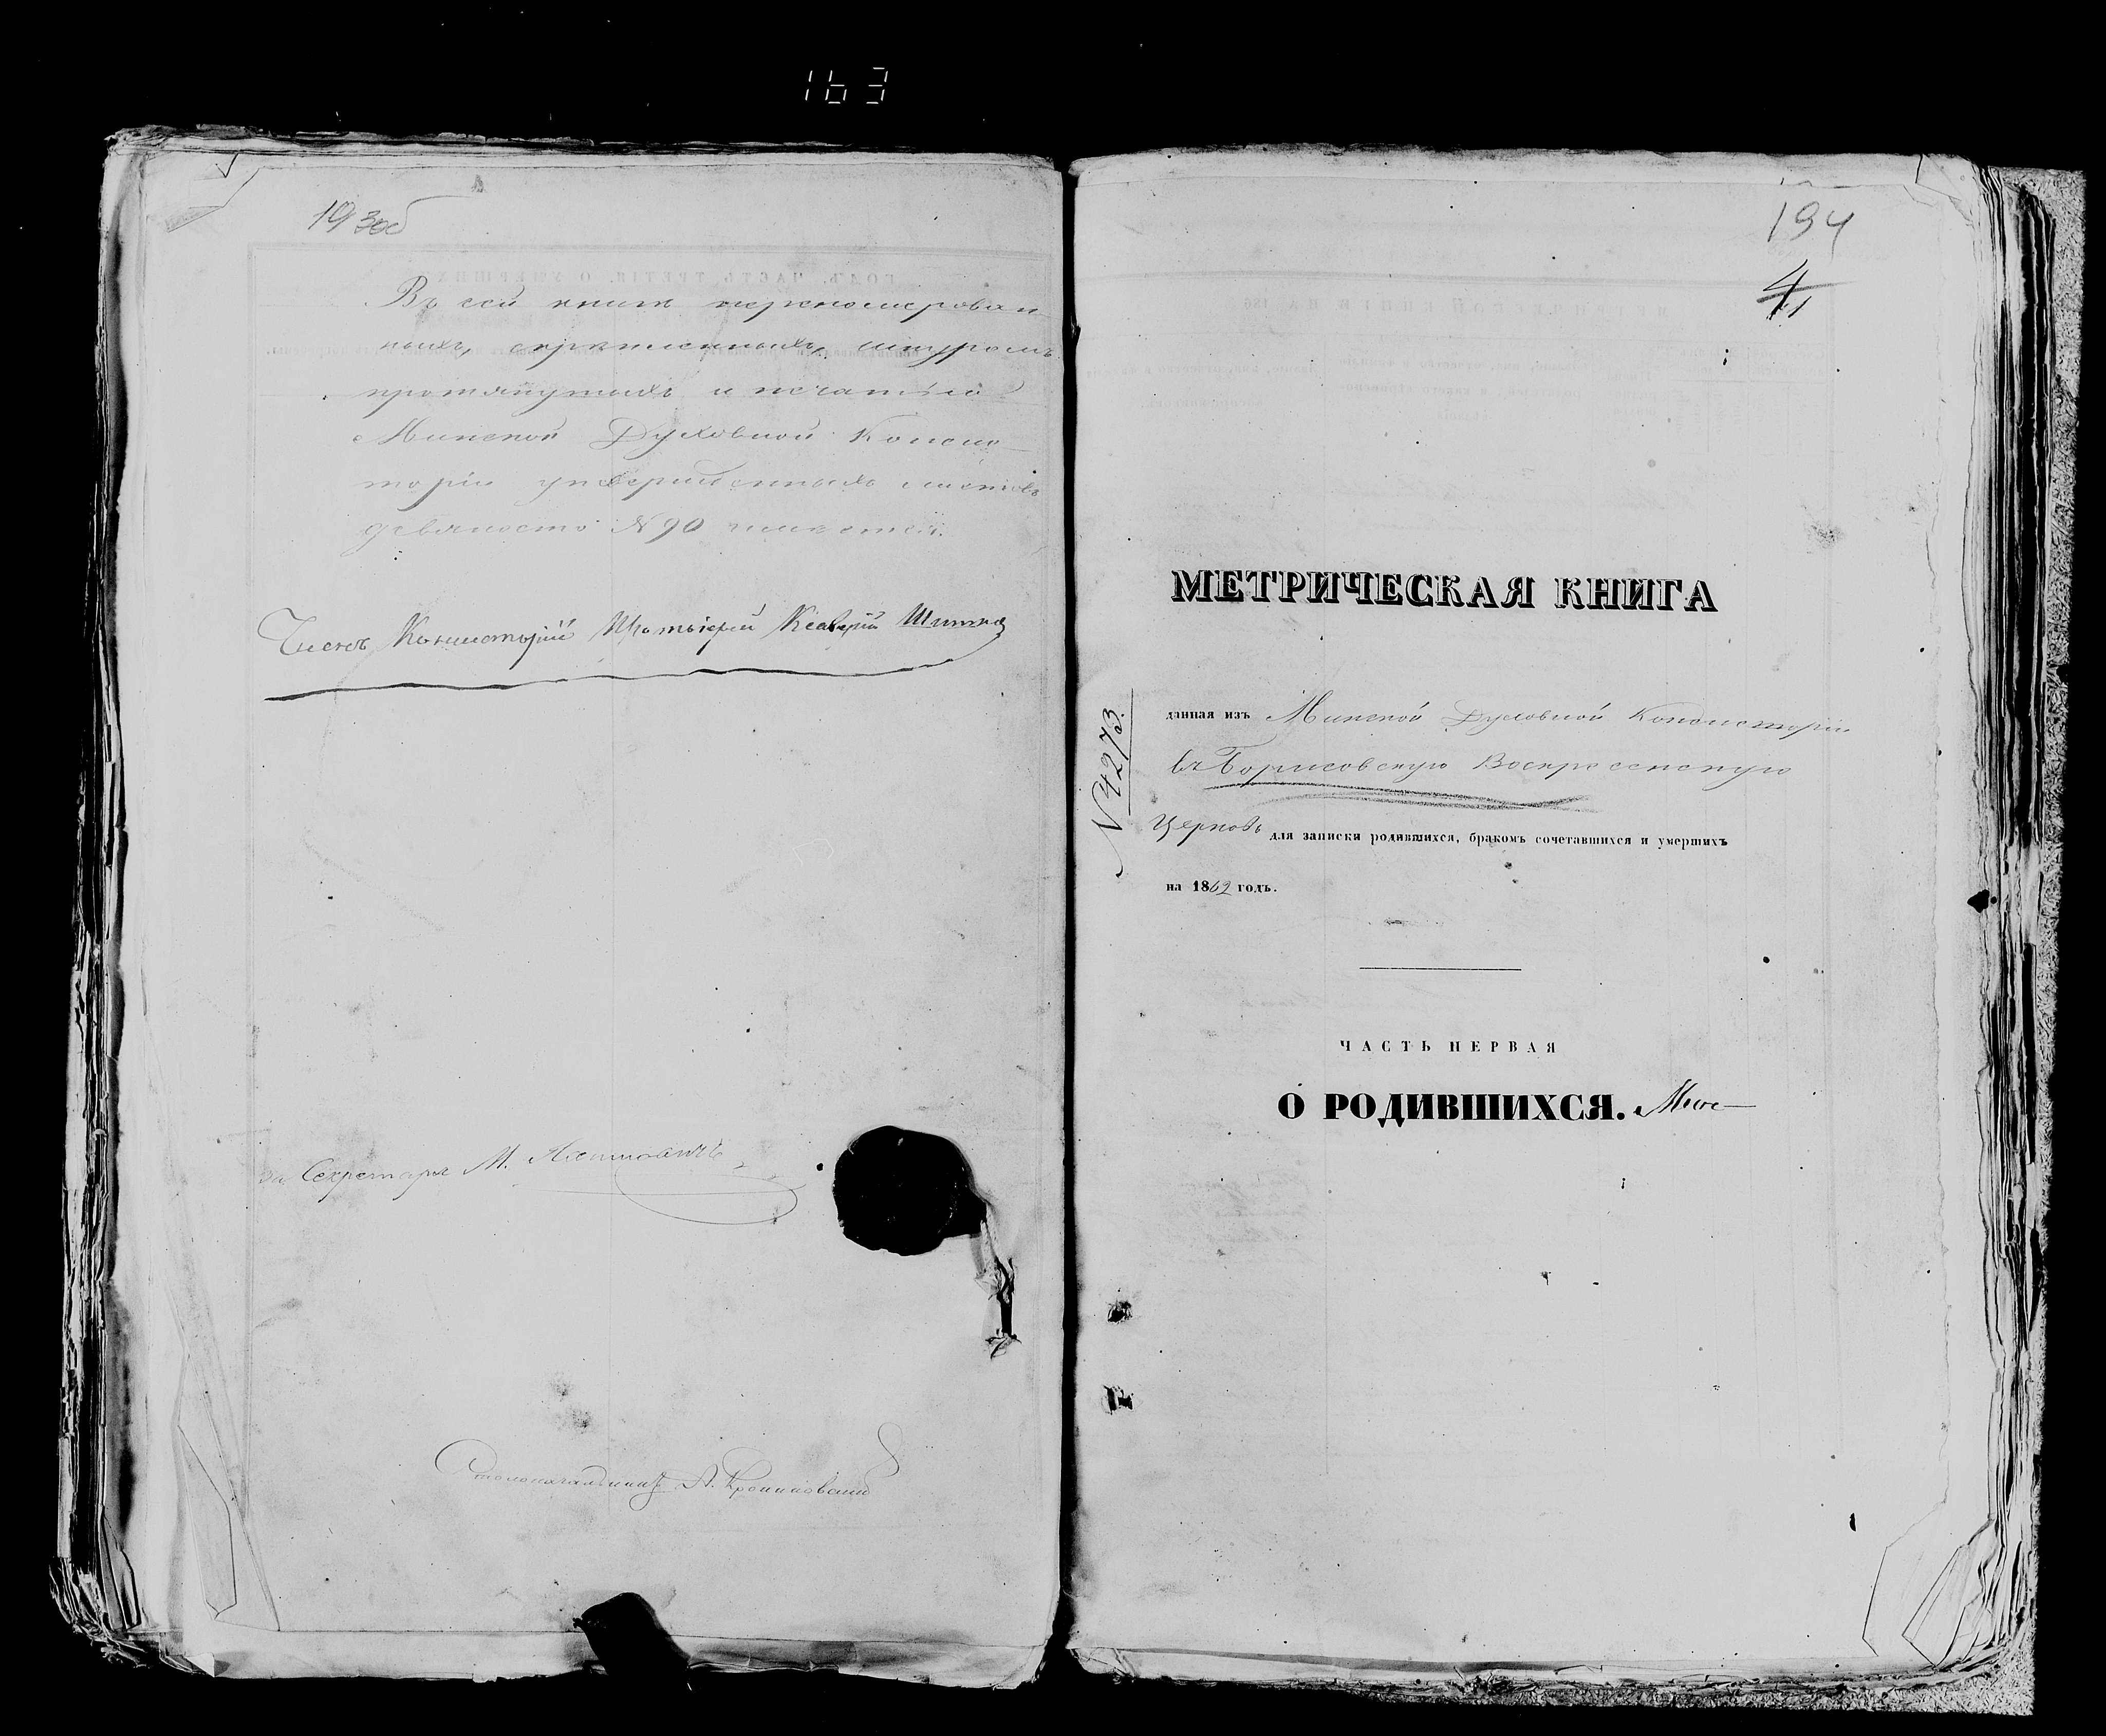 163
193об
Въ сей книгѣ перенумерован-
ныхъ, скрѣпленныхъ, шнуромъ
протянутыхъ и печатью
Минской Духовной Консис-
торіи утвержденныхъ листовъ
девяносто № 90
Членъ Консисторіи Протоіерей
Секретаря М.
Столоначальникъ А.
194
4
МЕТРИЧЕСКАЯ КНИГА
№ 4273.
данная изъ Минской Духовной Консисторіи
въ Борисовскую Воскресенскую
Церковь для записки родившихся, бракомъ сочетавшихся и умершихъ
на 1862 годъ.
ЧАСТЬ ПЕРВАЯ
О РОДИВШИХСЯ.